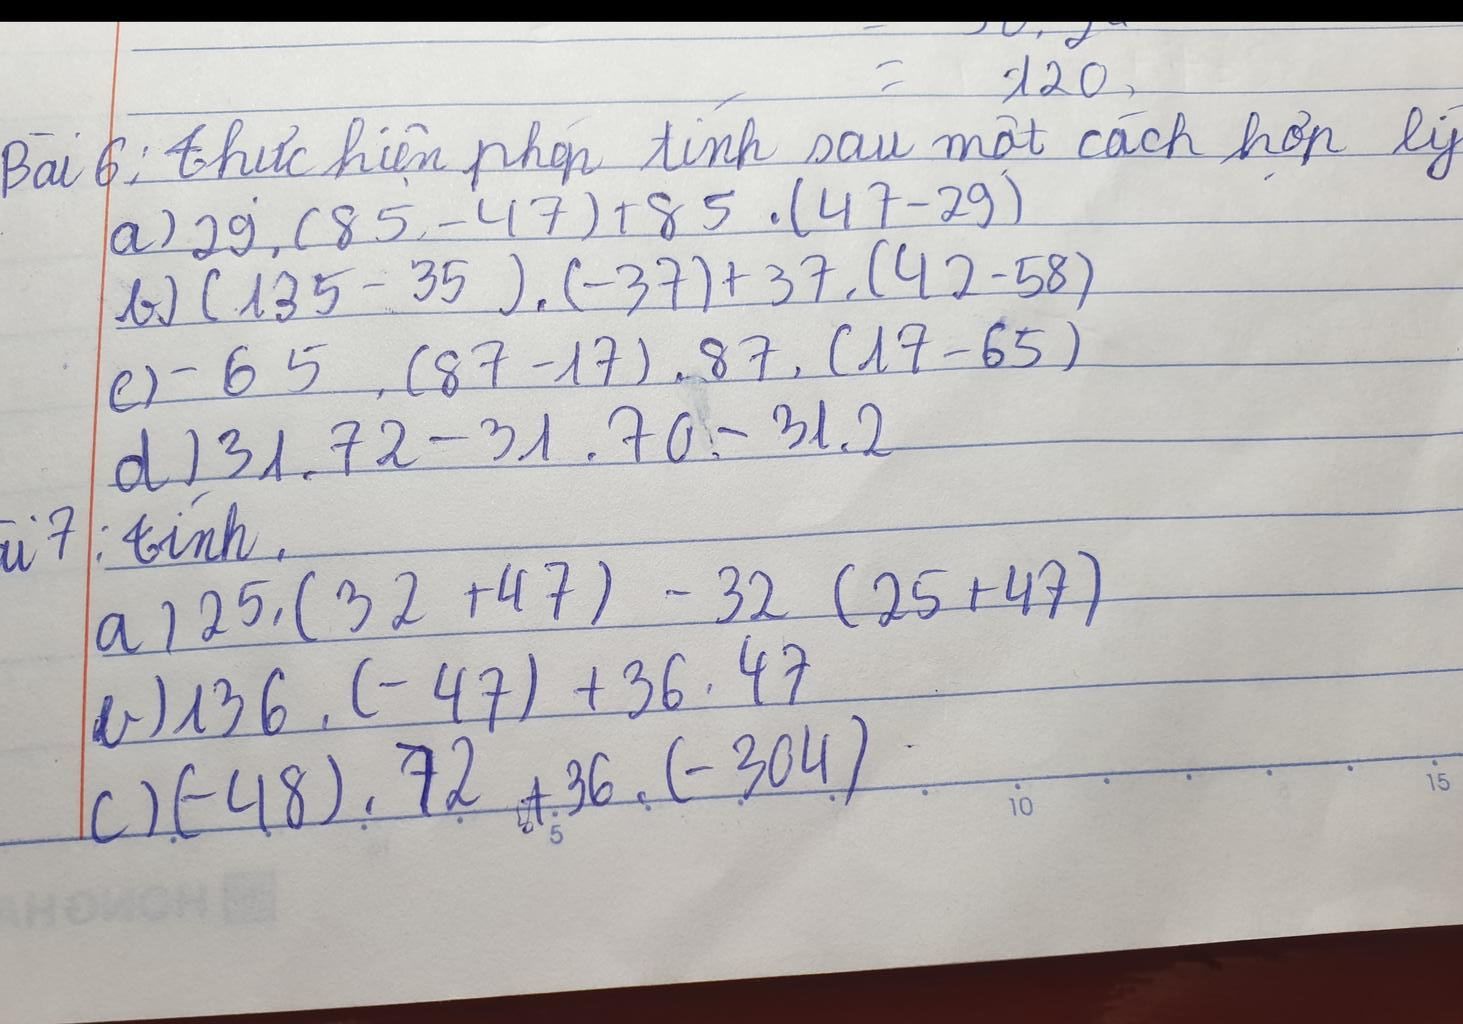 = 120,
Bài 6: thực hiện phép tính sau một cách hợp lý
a) 29.(85-47)+85.(47-29)
b) (135-35).(-37)+37.(42-58)
c) -65.(87-17).87.(17-65)
d) 31.72-31.70-31.2
7: tính.
a) 25.(32+47)-32(25+47)
b) 136.(-47)+36.47
c) (-48).72+36.(-304)
5 10 15
HONG HA